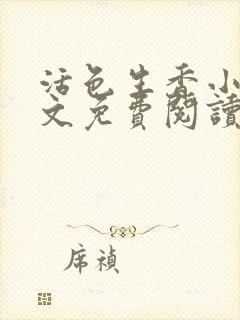 活色生香小
文免費閱讀
席禎